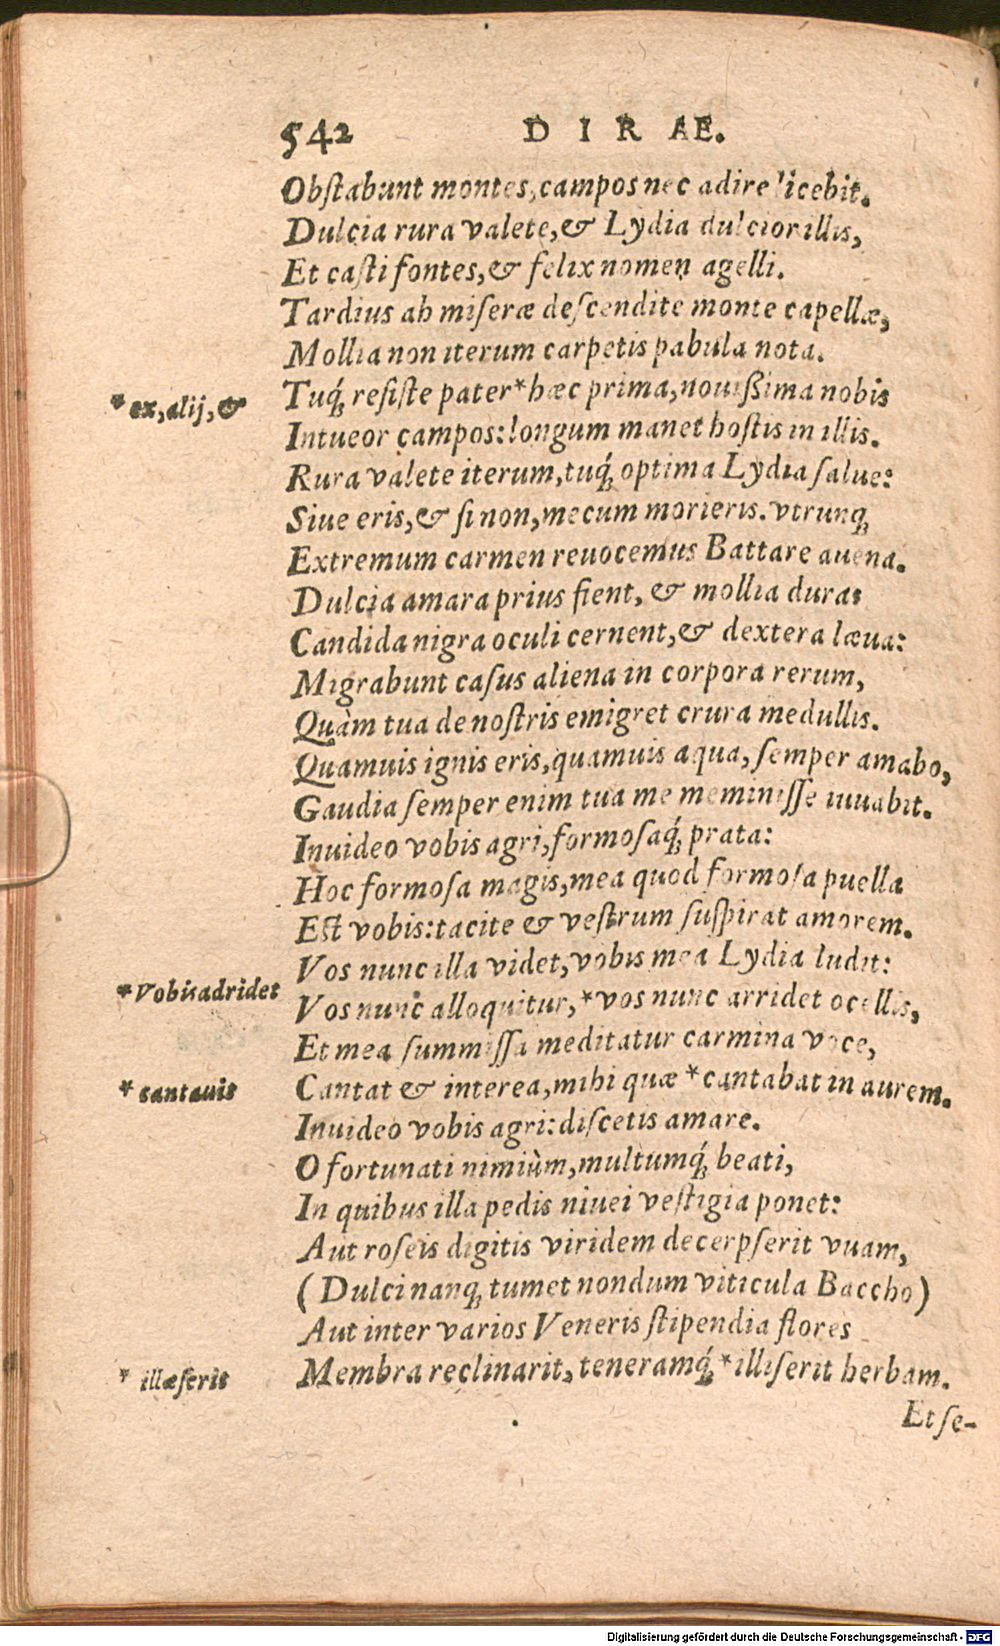 542 DIRAE.
Obſtabunt montes, campos nec adire licebit.
Dulcia rura valete, & Lydia dulcior illis,
Et caſti fontes, & felix nomen agelli.
Tardius ah miſeræ deſcendite monte capellæ,
Mollia non iterum carpetis pabula nota.
*ex, alij, &
Tuq́; reſiſte pater *hæc prima, nouißima nobis
Intueor campos: longum manet hoſtis in illis.
Rura valete iterum, tuq́; optima Lydia ſalue:
Siue eris, & ſi non, mecum morieris. vtrunq;
Extremum carmen reuocemus Battare auena.
Dulcia amara prius fient, & mollia dura:
Candida nigra oculi cernent, & dextera læua:
Migrabunt caſus aliena in corpora rerum,
Quàm tua de noſtris emigret crura medullis.
Quamuis ignis eris, quamuis aqua, ſemper amabo,
Gaudia ſemper enim tua me meminiſſe iuuabit.
Inuideo vobis agri, formoſaq́; prata:
Hoc formoſa magis, mea quod formoſa puella
Eſt vobis: tacite & veſtrum ſuſpirat amorem.
Vos nunc illa videt, vobis mea Lydia ludit:
*Vobis adridet
Vos nunc alloquitur, *vos nunc arridet ocellis,
Et mea ſummiſſa meditatur carmina voce,
*cantauis
Cantat & interea, mihi quæ *cantabat in aurem.
Inuideo vobis agri: diſcetis amare.
O fortunati nimiùm, multumq́; beati,
In quibus illa pedis niuei veſtigia ponet:
Aut roſeis digitis viridem decerpſerit vuam,
(Dulci nanq; tumet nondum viticula Baccho)
Aut inter varios Veneris ſtipendia flores
*illæſerit
Membra reclinarit, teneramq́; *illiſerit herbam.
Et ſe-
Digitalisierung gefördert durch die Deutsche Forschungsgemeinschaft - DFG